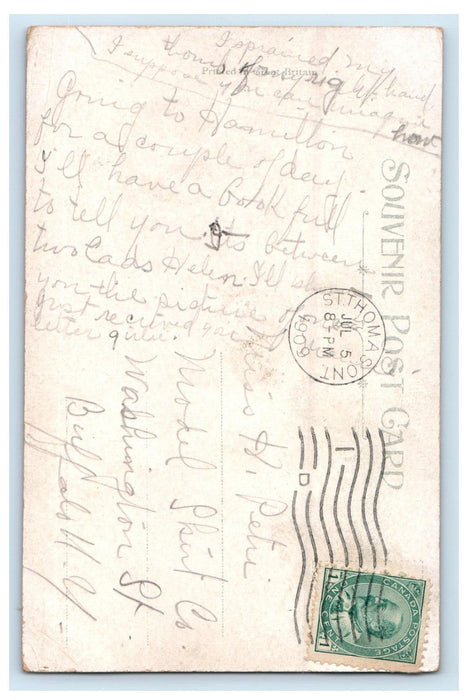 I sprained my
thumb on my right hand
I suppose you can imagine
how
Printed in Great Britain
Going to Hamilton
for a couple of days
I'll have a book full
to tell you its between
two Lads Helen. I'll show
you the picture of
Just received your
letter
SOUVENIR POST CARD
ST. THOMAS ONT
8 - PM
JUL 5
09
Miss H. Petri
Model Shirt Co
Washington St
Buffalo N Y
D
CANADA POSTAGE
ONE CENT
1 1